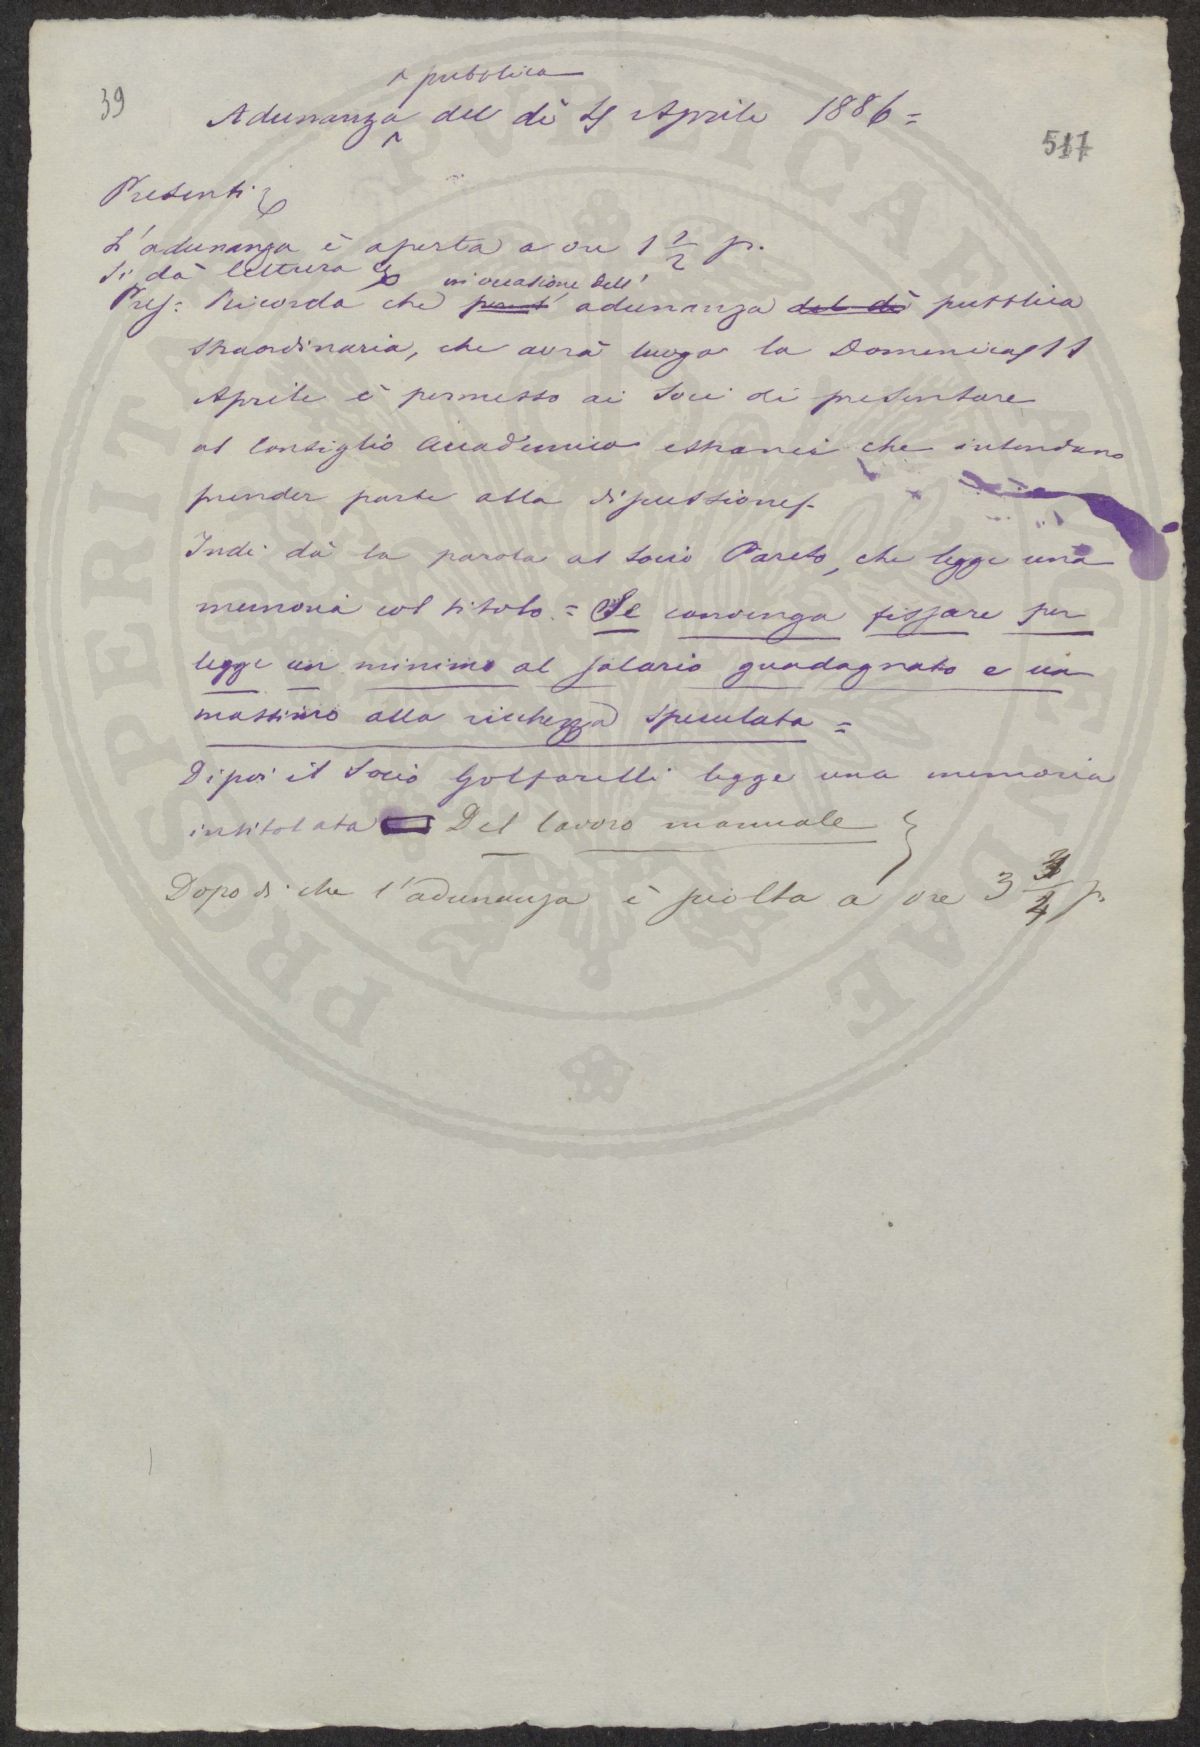 39
pubblica
Adunanza del dì 4 Aprile 1886 =
517
Presenti
L'adunanza è aperta a ore 1 1/2 p.
Si dà lettura
in occasione dell'
Pres: Ricorda che adunanza del dì pubblica
straordinaria, che avrà luogo la Domenica 11
Aprile è permesso ai Soci di presentare
al Consiglio Accademico estranei che intendano
prender parte alla discussione.
Indi dà la parola al Socio Pareto, che legge una
memoria col titolo = Se convenga fissare per
legge un minimo al salario guadagnato e un
massimo alla ricchezza speculata =
Dipoi il Socio Golfarelli legge una memoria
intitolata Del lavoro manuale
Dopo di che l'adunanza è sciolta a ore 3 3/4 p.
PROSPERITATI PVBLICAE AVGENDAE